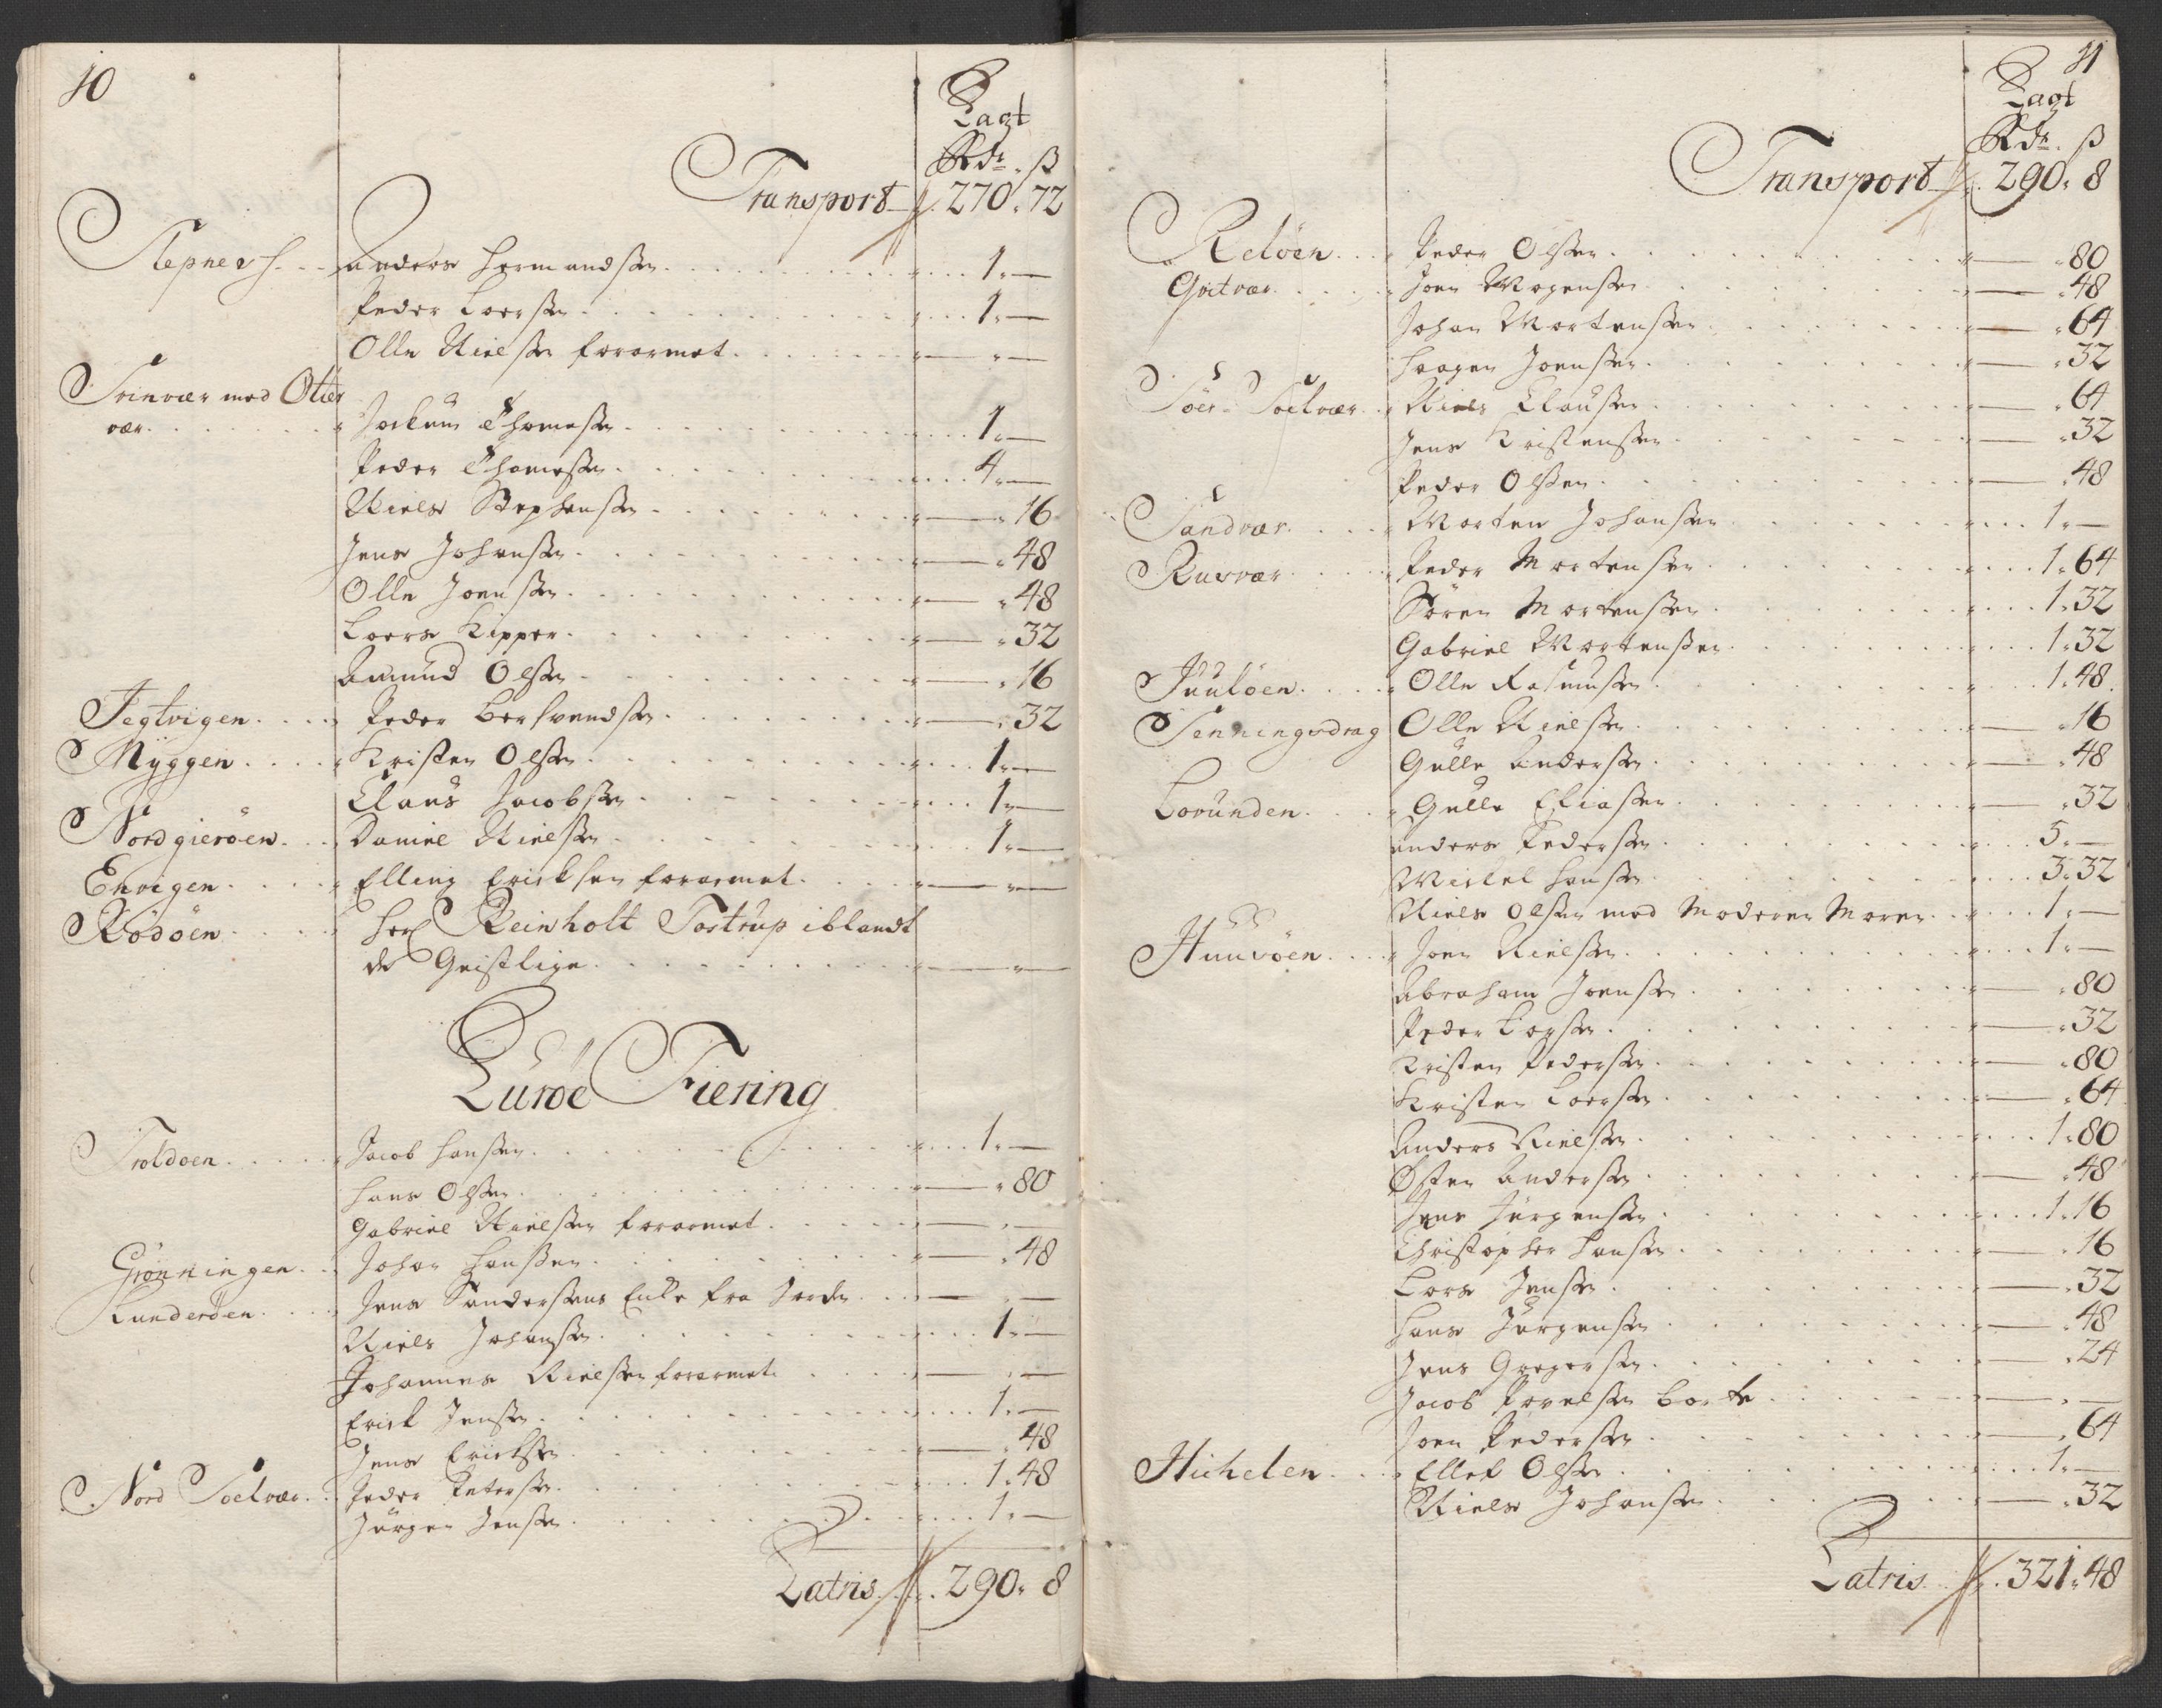 10
Lagt
Rdr. ß
Transport 270. 72
Slepnes Anders Hermandsen 1. —
Peder Larsen 1. —
Olle Nielsen forarmet — . —
Svinvær med Otter
vær Jockum Thomesen 1. —
Peder Thomesen 4. —
Niels Stephensen — . 16
Jens Johansen — . 48
Olle Joensen — . 48
Lars Kipper — . 32
Amund Olsen — . 16
Jegtvigen Peder Bersvendsen — . 32
Myggen Kristen Olsen 1. —
Claus Jacobsen 1. —
Nordgierøen Daniel Nielsen 1. —
Envigen Elling Ericksen forarmet — . —
Rødøen Her Reinholt Tostrup iblandt
de Geistlige — . —
Lurøe Fiering
Troldøen Jacob Hansen 1. —
Hans Olsen — . 80
Gabriel Nielsen forarmet — . —
Grønningen Johan Hansen — . 48
Kunderøen Jens Sandersens Enke fra Jorden — . —
Niels Johansen 1. —
Johannes Nielsen forarmet — . —
Erick Jensen 1. —
Jens Ericksen — . 48
Nord Soelvær Peder Petersen 1. 48
Jürgen Jensen 1. —
Latris 290. 8
11
Lagt
Rdr. ß
Transport 290. 8
Reløen Peder Olsen — . 80
Gietvær Joen Mogensen — . 48
Johan Mortensen — . 64
Haagen Joensen — . 32
Søer Soelvær Niels Clausen — . 64
Jens Kristensen — . 32
Peder Olsen — . 48
Sandvær Morten Johansen 1. —
Rusvær Peder Mortensen 1. 64
Søren Mortensen 1. 32
Gabriel Mortensen 1. 32
Juuløen Olle Rasmusen 1. 48
Senningsdrag Olle Nielsen — . 16
Gulle Andersen — . 48
Lovunden Gulle Eliasen — . 32
Anders Pedersen 5. —
Mickel Hansen 3. 32
Niels Olsen med Moderen Maren 1. —
Huusøen Joen Nielsen 1. —
Abraham Joensen — . 80
Peder Larsen — . 32
Kristen Pedersen — . 80
Kristen Larsen — . 64
Anders Nielsen 1. 80
Østen Andersen — . 48
Jens Jürgensen 1. 16
Christopher Hansen — . 16
Lars Jensen — . 32
Hans Jürgensen — . 48
Jens Gregersen — . 24
Jacob Povelsen borte — . —
Joen Pedersen — . 64
Hichelen Ellef Olsen 1. —
Niels Johansen — . 32
Latris 321. 48